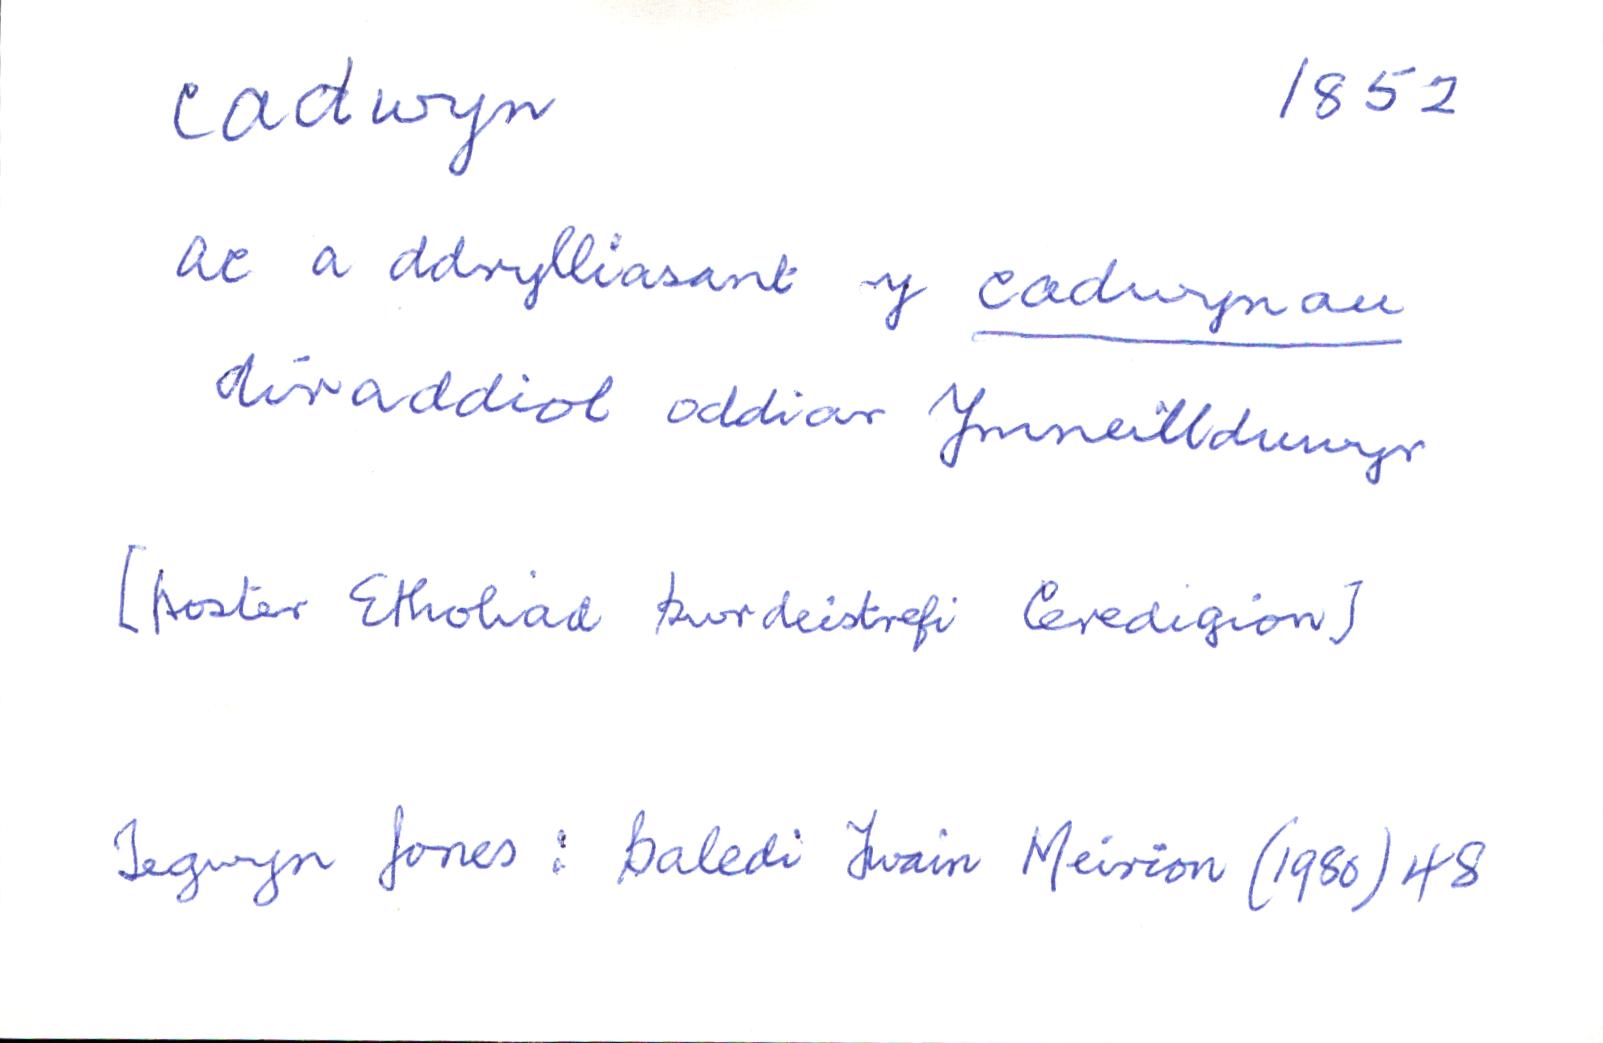 cadwyn 1852
ac a ddrylliasant y cadwynau
diraddiol oddiar Ymneillduwyr
[Poster Etholiad Bwrdeistrefi Ceredigion]
Tegwyn Jones : Baledi Ywain Meirion (1980) 48